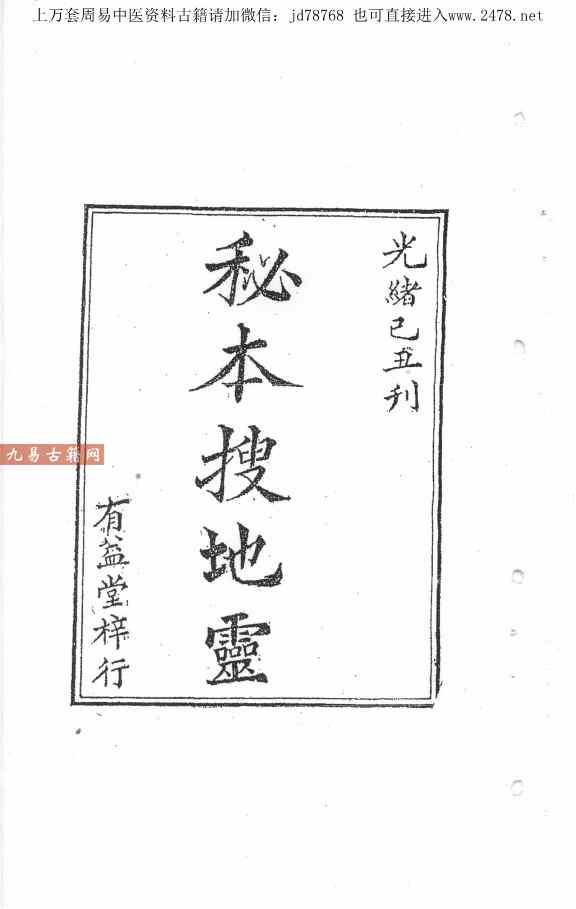 上万套周易中医资料古籍请加微信：jd78768 也可直接进入www.2478.net
光緒己丑刊
秘本搜地靈
有益堂梓行
九易古籍网